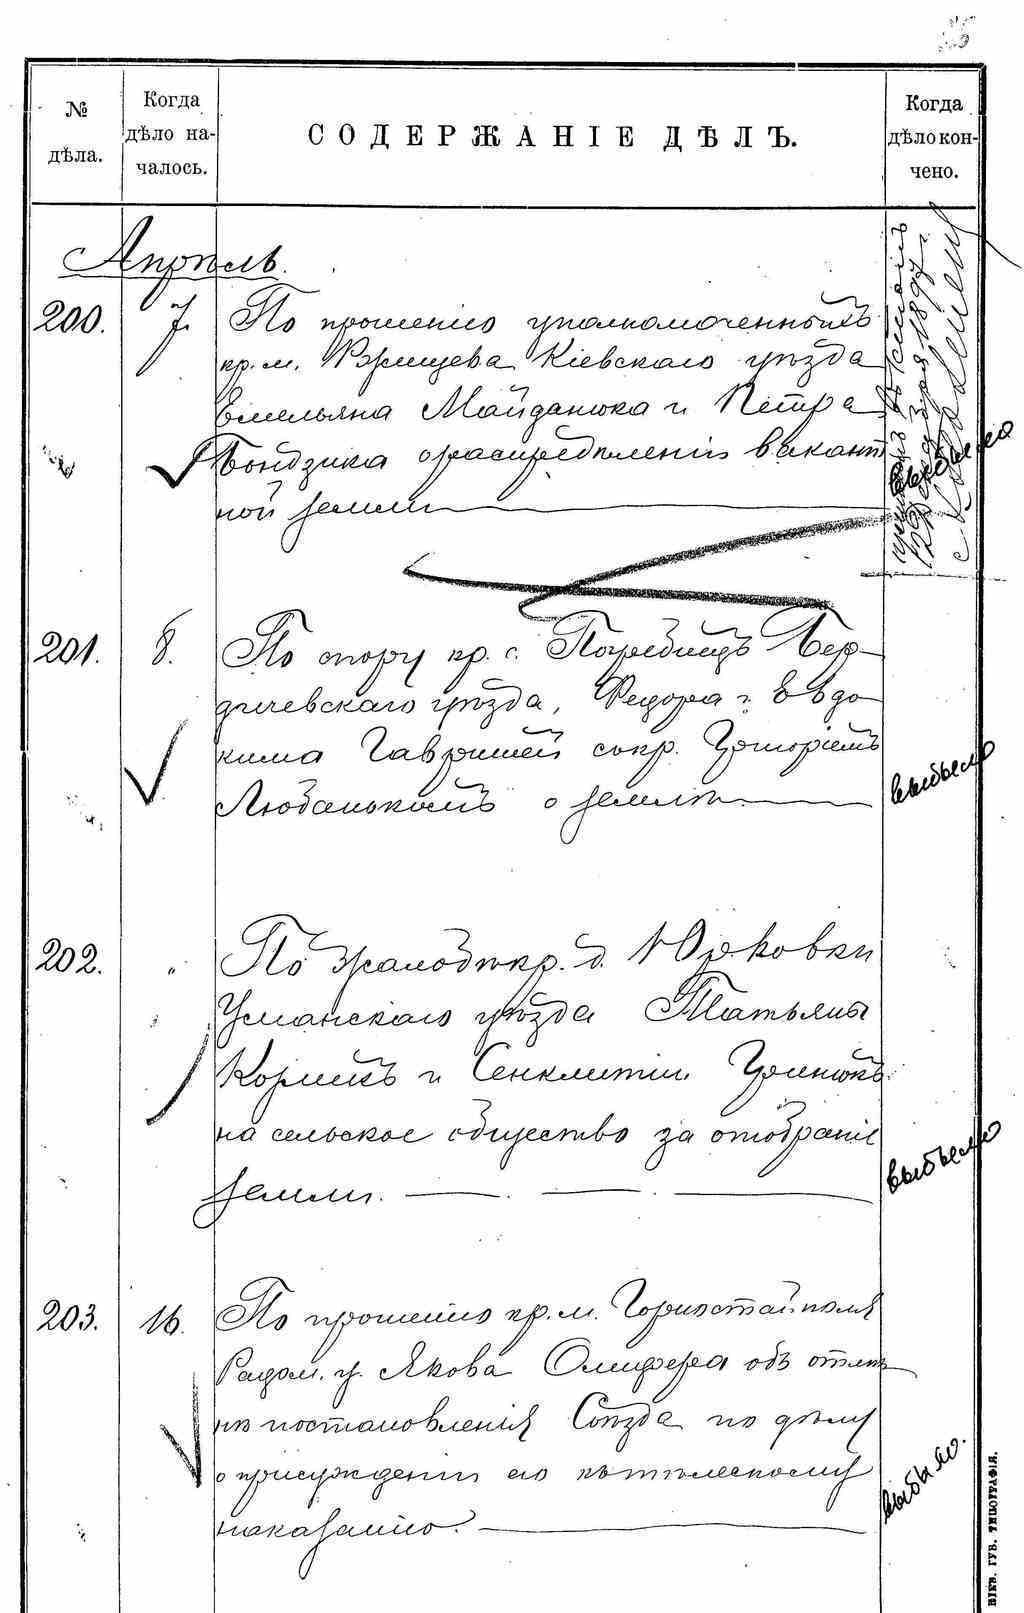 № дѣла.
Когда дѣло началось.
СОДЕРЖАНІЕ ДѢЛЪ.
Когда дѣло кончено.
Апрѣль.
200. 7. По прошенію уполномоченныхъ
кр. м. Ржищева Кіевскаго уѣзда
Емельяна Майданюка и Петра
Бондзика о распредѣленіи вакант
ной земли
выбыло
201. 8. По спору кр. с. Погребищъ Бер-
дичевскаго уѣзда, Федора и Евдо
кима Гавришей съ кр. Григоріемъ
Любанькомъ о землѣ
выбыло
202. „ По жалобѣ кр. д. Юрковки
Уманскаго уѣзда Татьяны
и Сенклитіи
на сельское общество за отобраніе
земли.
выбыло
203. 16. По прошенію кр. м. Горностайполя
Радом. у. Якова Олифера объ отмѣ
нѣ постановленія Съѣзда по дѣлу
о присужденіи его къ тѣлесному
наказанію.
выбыло.
КІЕВ. ГУБ. ТИПОГРАФІЯ.